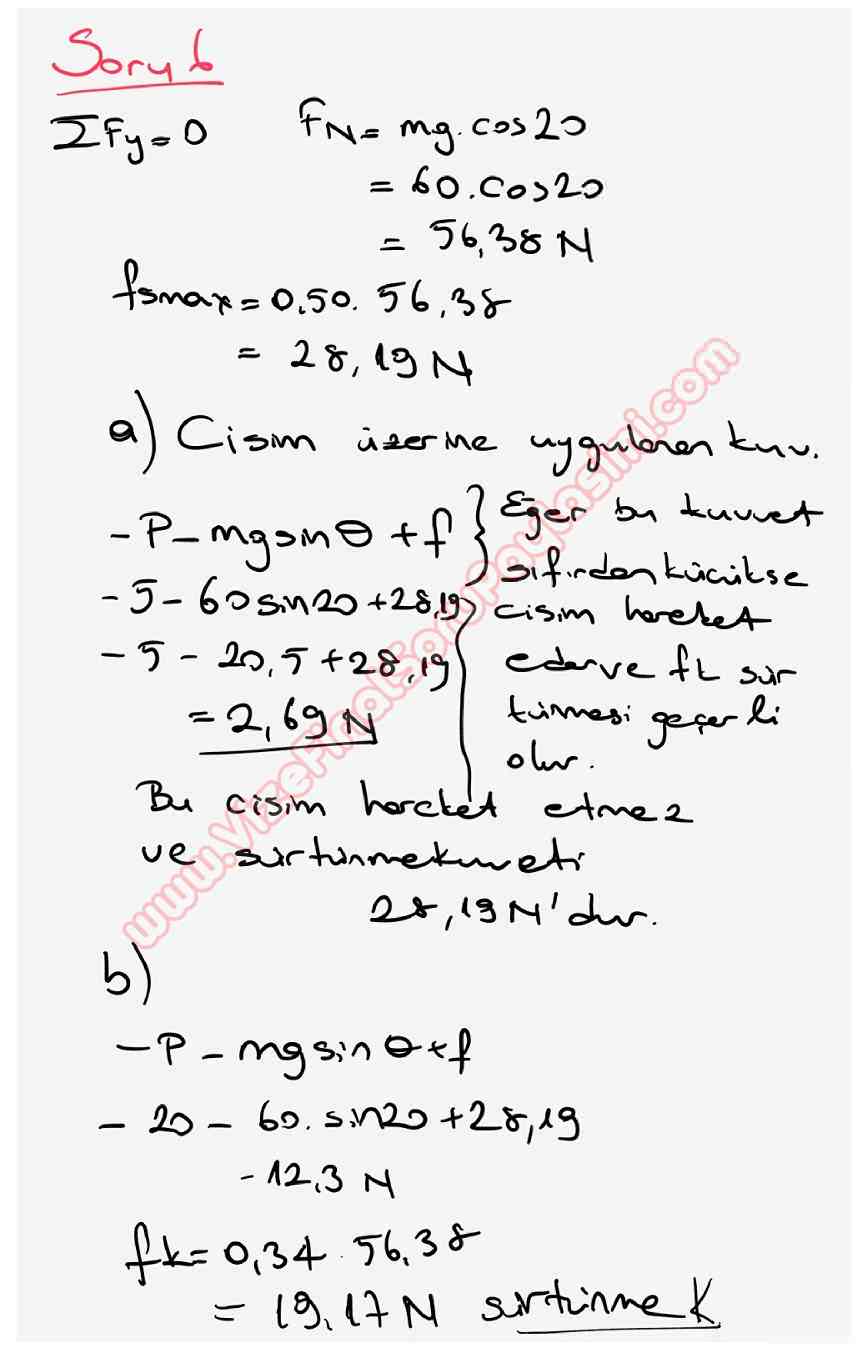 Soru 6
ΣFy=0 FN= mg.cos20
= 60.cos20
= 56,38 N
fsmax=0,50. 56,38
= 28,19 N
a) Cisim üzerine uygulanan kuv.
-P-mgsinθ+f } Eğer bu kuvvet
sıfırdan küçükse
-5-60sin20+28,19 cisim hareket
-5-20,5+28,19 eder ve fk sür
=2,69 N tünmesi geçerli
olur.
Bu cisim hareket etmez
ve sürtünme kuveti
28,19 N'dur.
b)
-P-mgsinθ+f
-20-60.sin20+28,19
-12,3 N
fk=0,34.56,38
=19,17 N sürtünme K
www.VizeFinalSoruPaylasimi.com